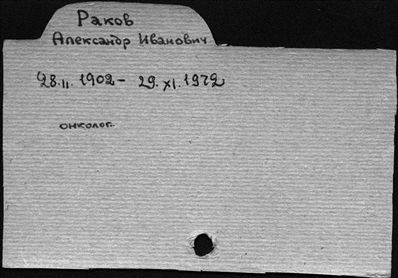 Раков
Александр Иванович
28.II. 1902 - 29.XI.1972
онколог.